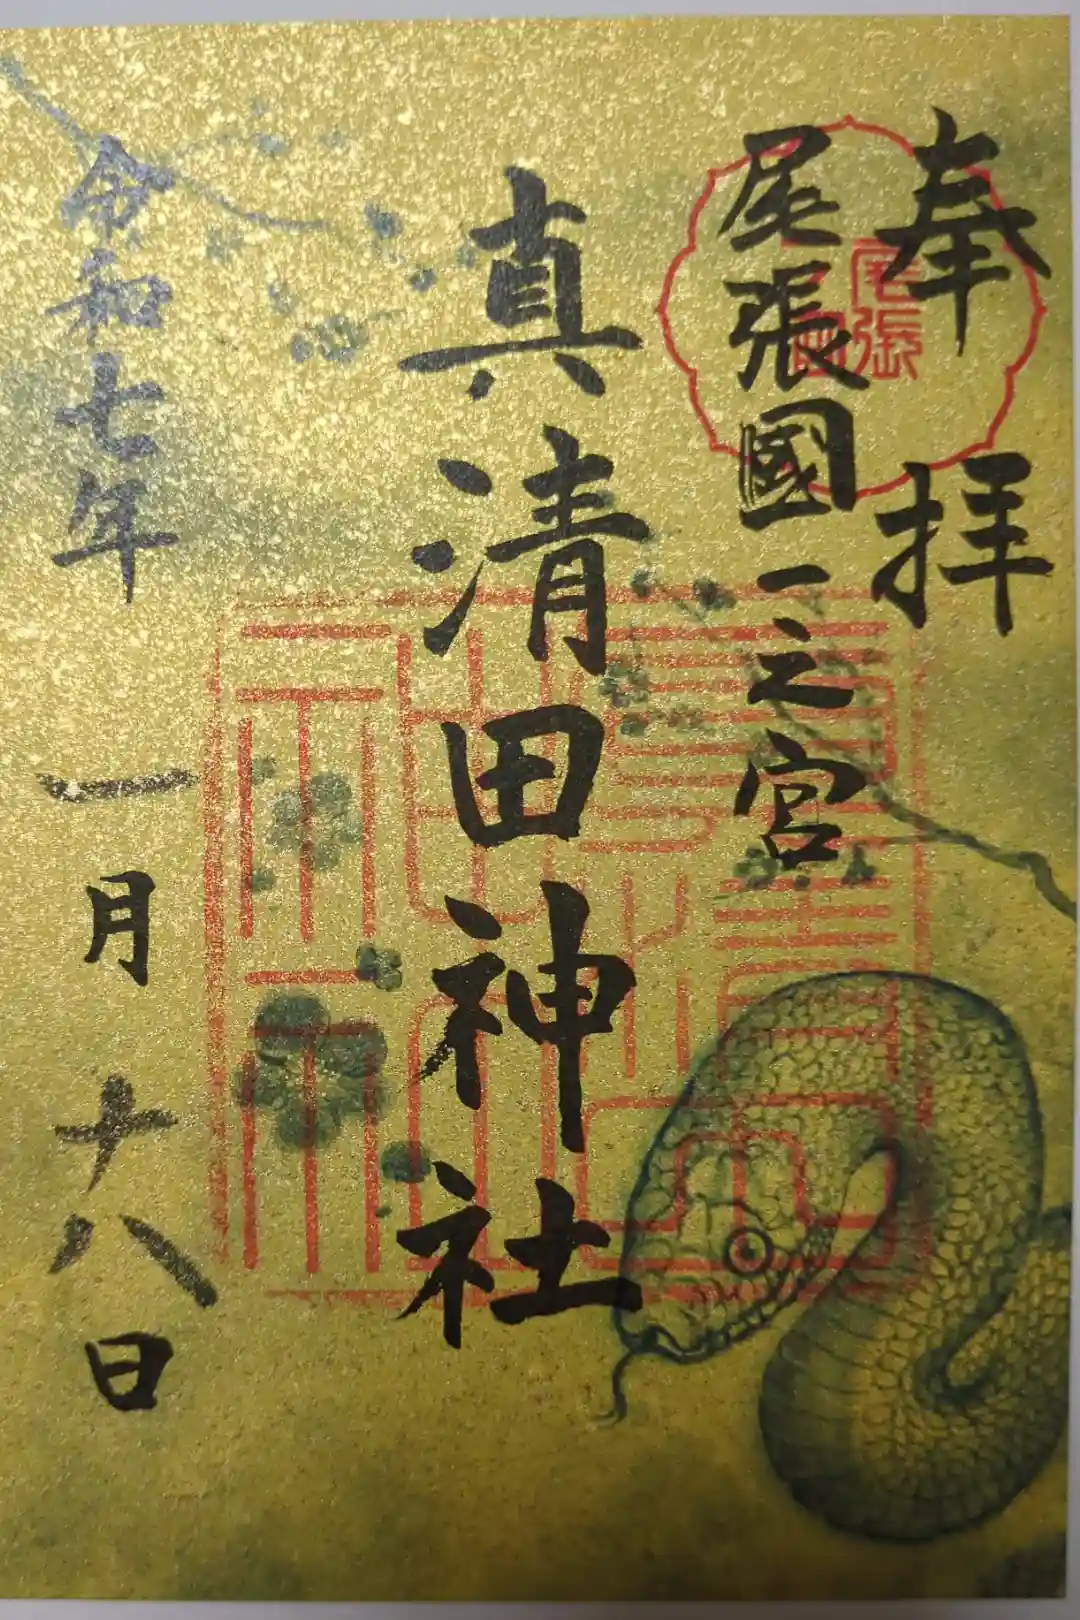 奉拝
尾張國一之宮
真清田神社
令和七年一月十八日
尾張